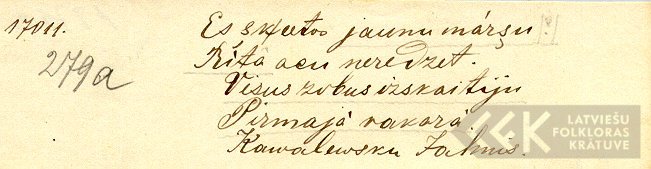 17011.
Es skeetos jaunu márşu
279a
Rítá acu neredzet.
Visus zobus izskaitiju
Pirmajá vakará.
Kawalewsku Jahnis.
LATVIEŠU
FOLKLORAS
KRĀTUVE